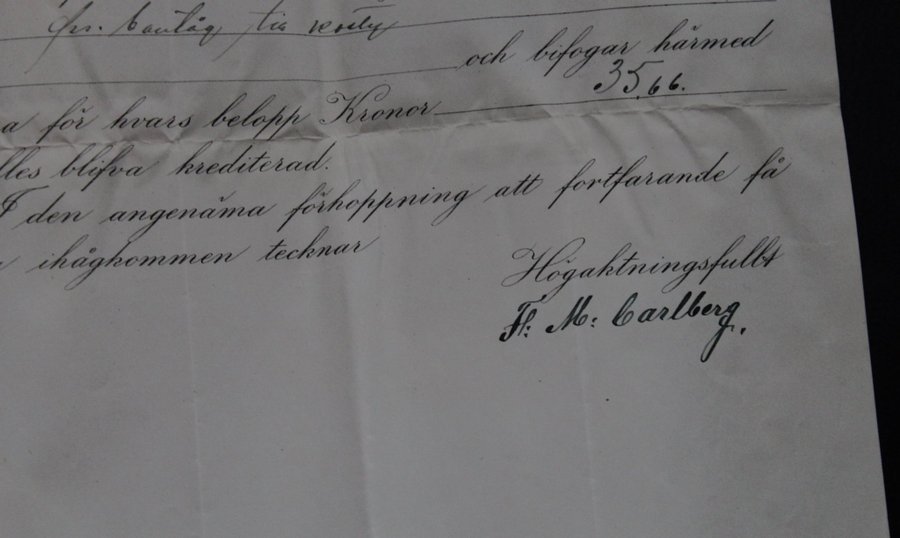 och bifogar härmed
a för hvars belopp Kronor 35.66.
lles blifva krediterad.
I den angenäma förhoppning att fortfarande få
ihågkommen tecknar
Högaktningsfullt
F: M: Carlberg.